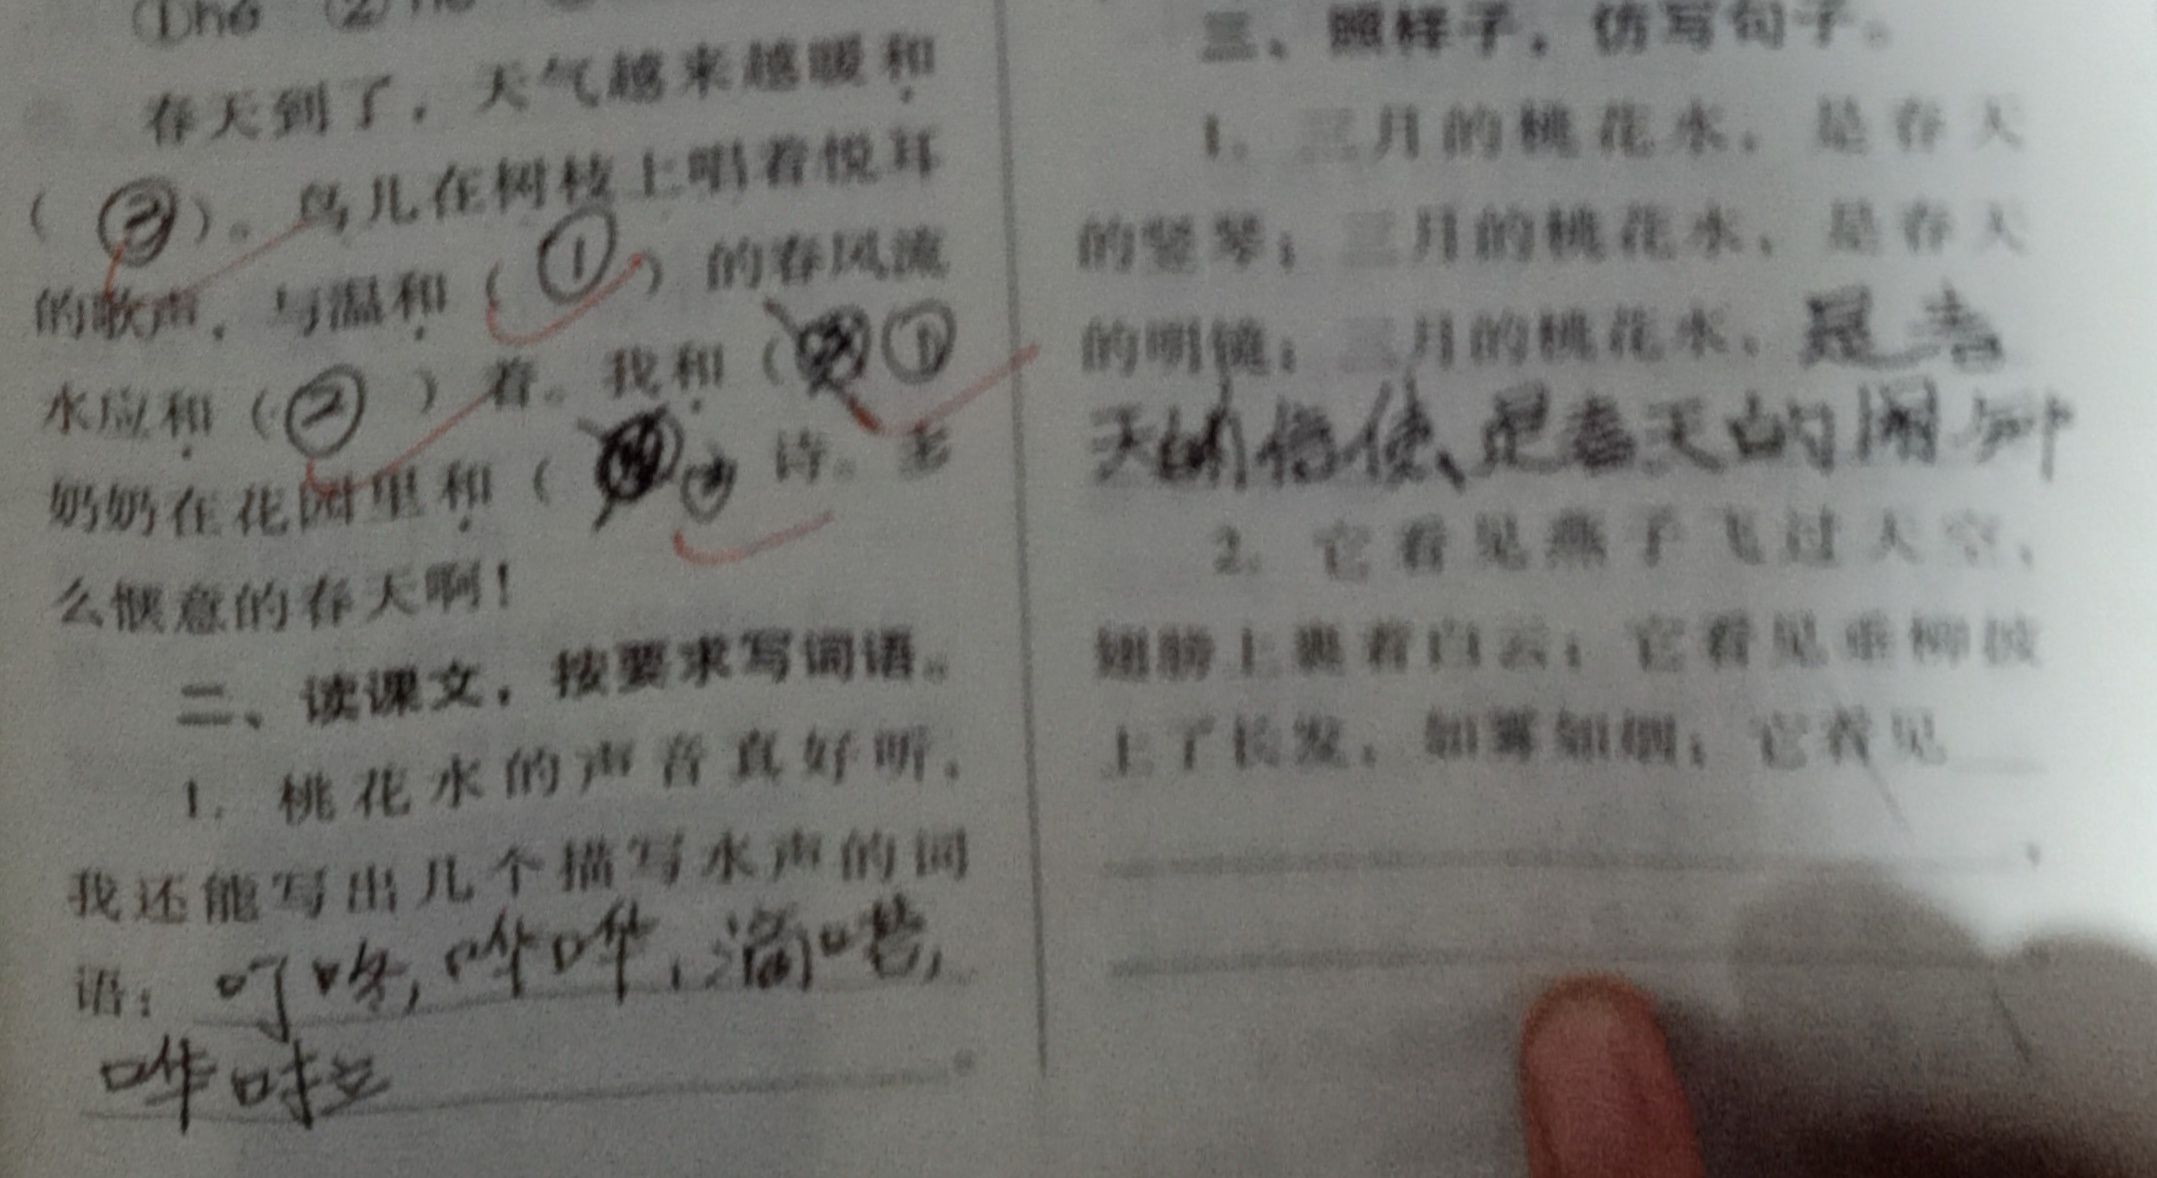 ①hé ②h
春天到了，天气越来越暖和
（②）。鸟儿在树枝上唱着悦耳
的歌声，与温和（①）的春风流
水应和（②）着。我和（①
奶奶在花园里和（ ）诗。多
么惬意的春天啊！
二、读课文，按要求写词语。
1. 桃花水的声音真好听，
我还能写出几个描写水声的词
语：叮咚，哗哗，滴嗒，
哗啦。
三、照样子，仿写句子。
1. 三月的桃花水，是春天
的竖琴；三月的桃花水，是春天
的明镜；三月的桃花水，是春
天的信使、是春天的闹钟
2. 它看见燕子飞过天空，
翅膀上裹着白云；它看见垂柳披
上了长发，如雾如烟；它看见
，
。